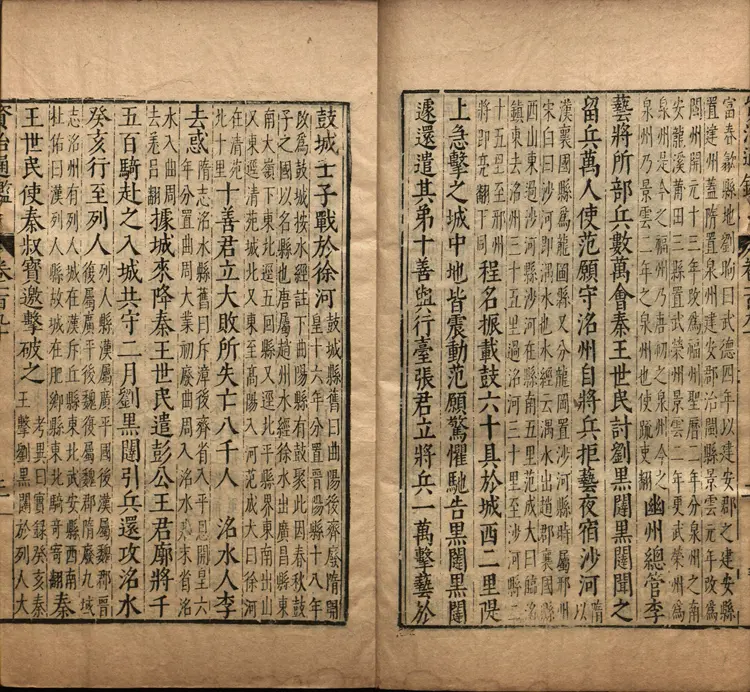 富春歙縣地劉昫曰武德四年以建安郡之建安縣
置建州蓋隋置泉州建安郡治閩縣景雲元年改爲
閩州開元十三年改爲福州聖曆二年分泉州之南
安龍溪莆田三縣置武榮州景雲二年更武榮州爲
泉州是今之福州乃唐初之泉州今之
泉州乃景雲二年之泉州也使疏吏翻
幽州總管李
藝將所部兵數萬會秦王世民計劉黑闥黑闥聞之
留兵萬人使范願守洺州自將兵拒藝夜宿沙河
隋
以
漢襄國縣爲龍岡縣又分龍岡置沙河縣時屬
宋白曰沙河即湡水也水經云湡水出趙郡襄國
西山東過沙河縣在縣南五里范成大曰臨洺
鎮東去洺州三十五里過洺河三十里至沙河縣二
十五里至邢州
將即亮翻下同
程名振載鼓六十具於城西二里隄
上急擊之城中地皆震動范願驚懼馳告黑闥黑闥
遽還遣其弟十善與行臺張君立將兵一萬擊藝於
鼓城士子戰於徐河
鼓城縣舊曰曲陽後齊廢隋開
皇十六年分置晉陽縣十八年
改爲鼓城按水經註下曲陽縣有鼓聚此因春秋鼓
子之國以名縣也唐屬趙州水經徐水出廣昌縣東
南大嶺下東北逕五回縣又逕北平縣界東南出山
又東逕清苑城北又東至高陽入河范成大曰徐河
在清苑
北十里
十善君立大敗所失亡八千人 洺水人李
去惑
隋志洺水縣舊曰斥漳後齊省入平恩開皇六
年分置曲周大業初廢曲周入洺水 省洺
水入曲周
去羌呂翻
據城來降秦王世民遣彭公王君廓將千
五百騎赴之入城共守二月劉黑闥引兵還攻洺水
癸亥行至列人
列人縣漢屬廣平國後漢屬魏郡晉
後屬廣平後魏復屬魏郡隋廢九域
志洺州有列人城在漢斥丘縣東北武安縣西南
杜佑曰漢列人縣故城在肥鄉縣東北騎奇寄翻
秦
王世民使秦叔寶邀擊破之
考異曰實錄癸亥秦
王擊劉黑闥於列人大
資治通鑑
卷一百九十